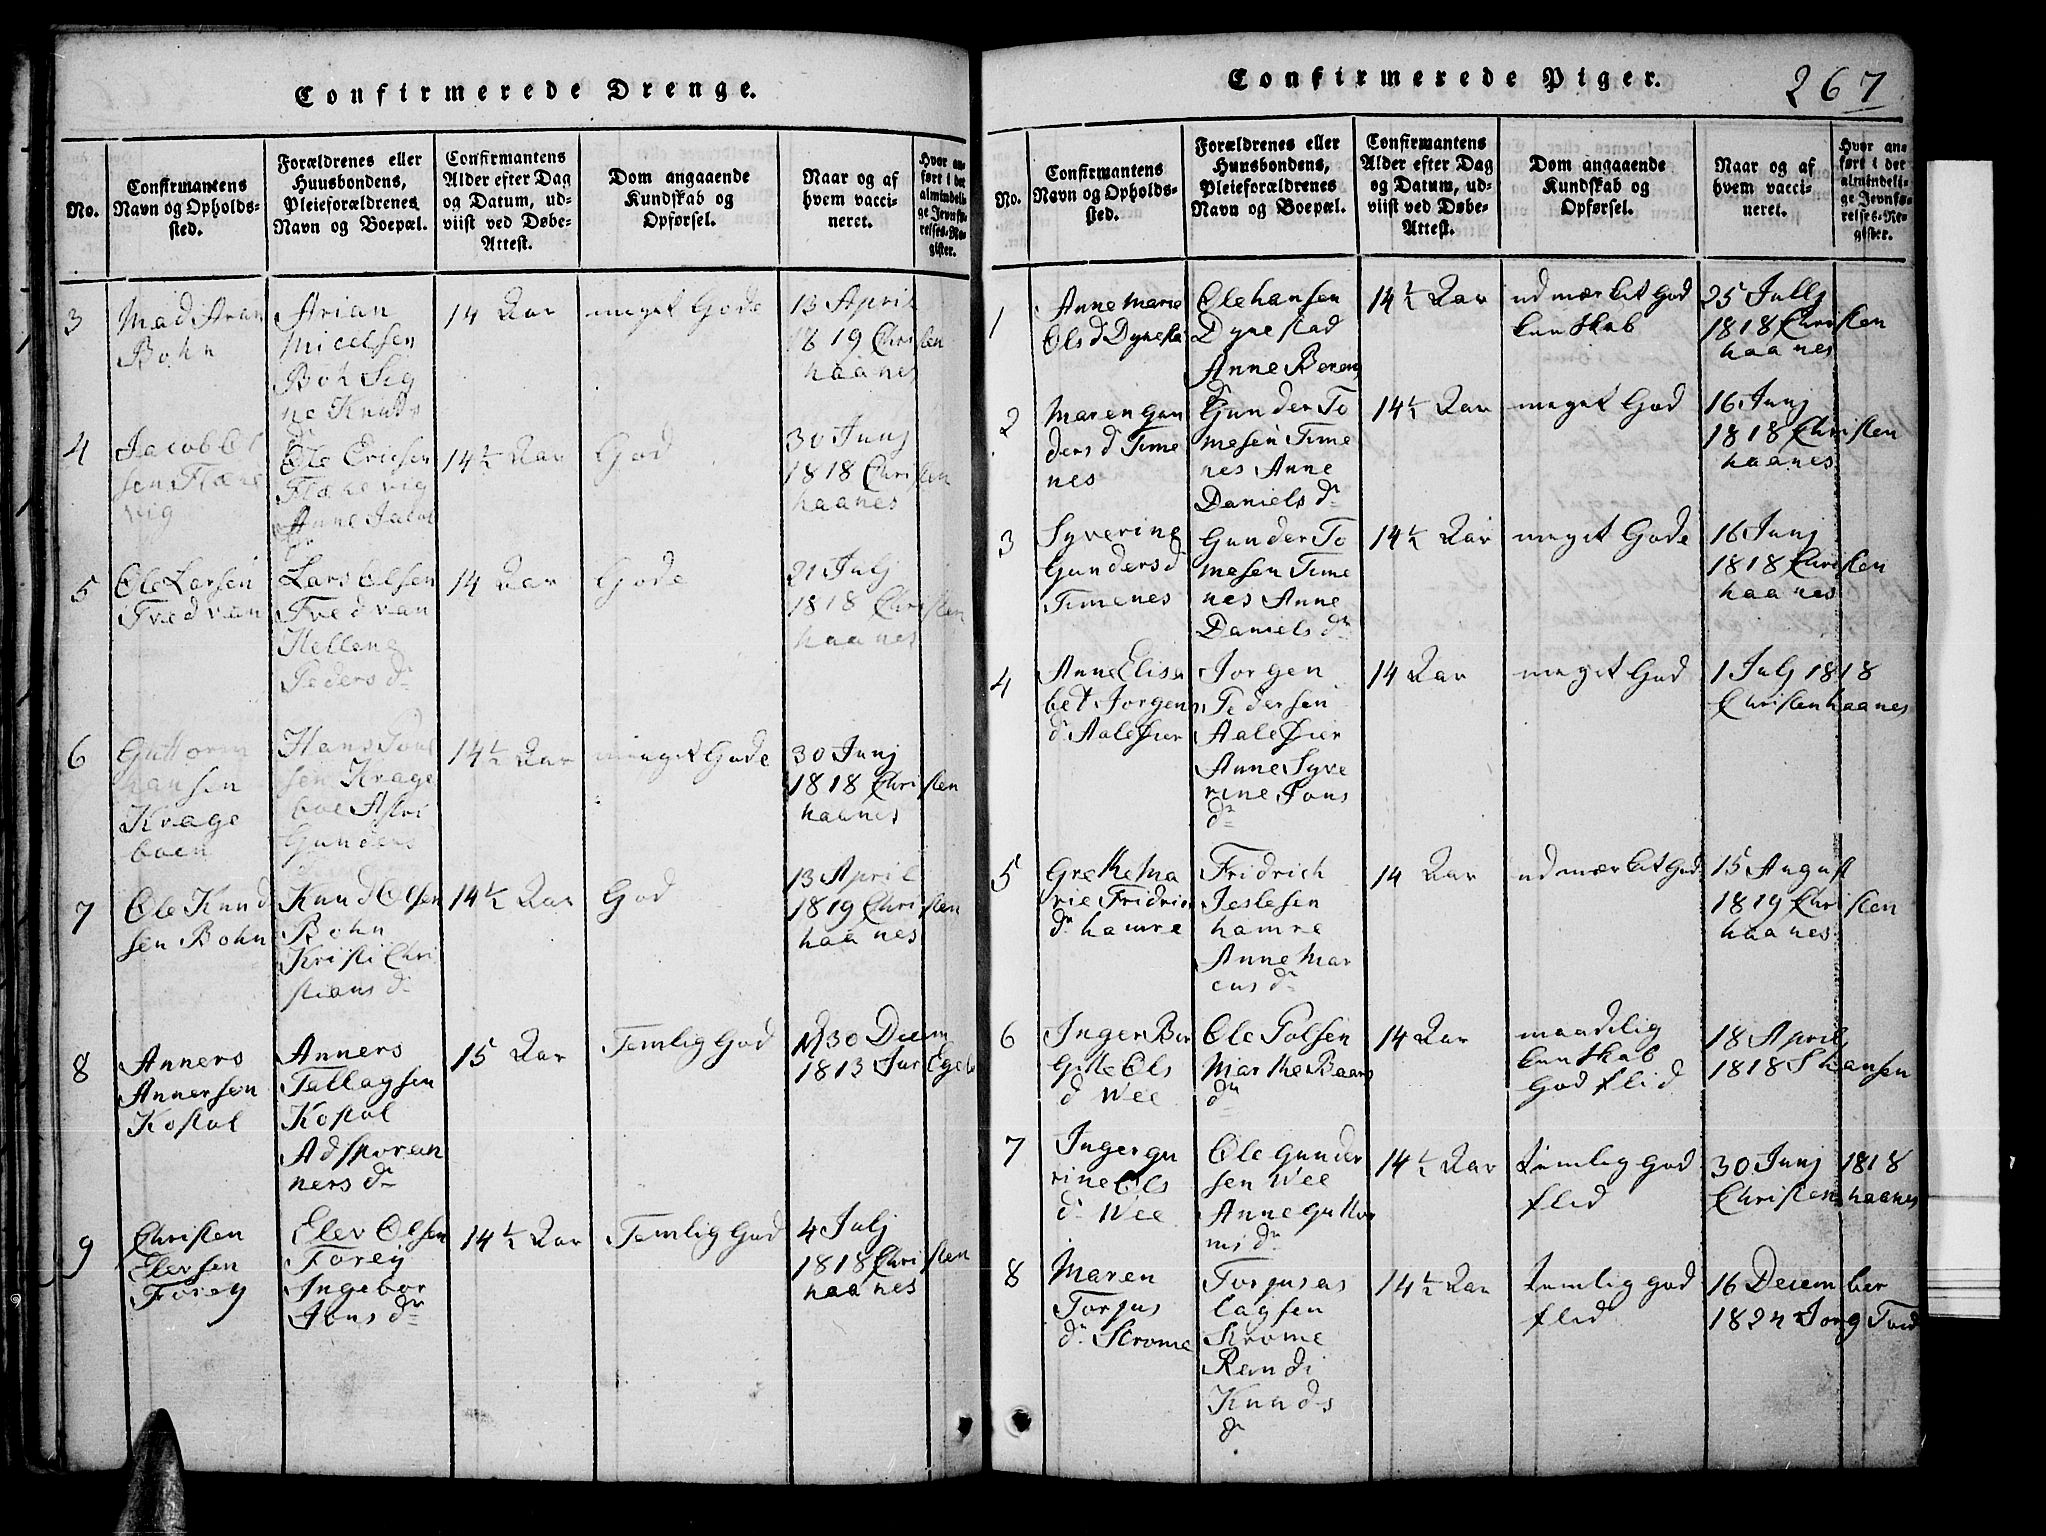 Confirmerede Drenge.
No.
Confirmantens
Navn og Opholds-
sted.
Forældrenes eller
Huusbondens,
Pleieforældrenes
Navn og Boepæl.
Confirmantens
Alder efter Dag
og Datum, ud-
viist ved Døbe-
Attest.
Dom angaaende
Kundskab og
Opførsel.
Naar og af
hvem vacci-
neret.
Hvor an-
ført i det
almindeli-
ge Jevnfø-
relses-Re-
gister.
3
Mad Arian
Bohn
Arian
Micelsen
Boh Sig
ne Knuds
dr
14 Aar
meget Gode
13 April
1819 Christen
haanes
4
Jacob Ol
sen Fløne
vig
Ole Ericsen
Flønevig
Anne Jacob
dr
14½ Aar
God
30 Junj
1818 Christen
haanes
5
Ole Larsen
Tvedvan
Lars Olsen
Tvedvan
Hellene
Peders dr
14 Aar
Gode
21 Julj
1818 Christen
haanes
6
Guttorm
hansen
Krage
boen
Hans Poul
sen Krage
boe Astri
Gunders
14½ Aar
meget Gode
30 Junj
1818 Christen
haanes
7
Ole Knud
sen Bohn
Knud Olsen
Bohn
Kristi Chri
stians dr
14½ Aar
God
13 April
1819 Christen
haanes
8
Anners
Annersen
Kostol
Anners
Tallagsen
Kostol
Adspor an
ners dr
15 Aar
Temlig God
30 Decem
1813
9
Christen
Elevsen
Forey
Elev Olsen
Forey
Ingebor
Jons dr
14½ Aar
Temlig God
4 Julj
1818 Christen
haanes
Confirmerede Piger.
267
No.
Confirmantens
Navn og Opholds-
sted.
Forældrenes eller
Huusbondens,
Pleieforældrenes
Navn og Boepæl.
Confirmantens
Alder efter Dag
og Datum, ud-
viist ved Døbe-
Attest.
Dom angaaende
Kundskab og
Opførsel.
Naar og af
hvem vacci-
neret.
Hvor an-
ført i det
almindeli-
ge Jevnfø-
relses-Re-
gister.
1
Anne Marie
Ols d Dynesta
Ole hansen
Dynestad
Anne Berens
dr
14½ Aar
udmærket God
kunskab
25 Julj
1818 Christen
haanes
2
Maren Gun
ders d Time
nes
Gunder To
mesen Time
nes Anne
Daniels dr
14½ Aar
meget God
16 Junj
1818 Christen
haanes
3
Syverine
Gunders d
Timenes
Gunder To
mesen Time
nes Anne
Daniels dr
14½ Aar
meget Gode
16 Junj
1818 Christen
haanes
4
Ann Elisa
bet Jorgens
d Aalefier
Jorgen
Pedersen
Aalefier
Anne Syve
rine Jons
dr
14 Aar
meget God
1 Julj 1818
Christen haanes
5
Grethe Ma
rie Fridric
dr hamre
Fridrich
Jeslesen
hamre
Anne Mar
cus dr
14 Aar
udmærket God
15 August
1819 Christen
haanes
6
Inger Bir
gitte Ols
d Wee
Ole Polsen
Marthe Baars
dr
14 Aar
maadelig
kunskab
God flid
18 April
1818 S hansen
7
Inger gu
rine Ols
d Wee
Ole Gunder
sen Wee
Anne Guttor
ms dr
14½ Aar
temlig god
flid
30 Junj 1818
Christen haanes
8
Maren
Torjus
dr Strome
Torjus as
lagsen
Strome
Randi
Knuds
dr
14½ Aar
temlig god
flid
16 December
1824 Jorg